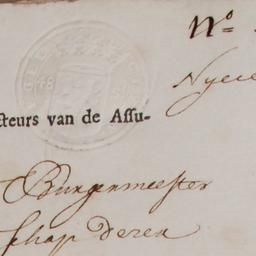 Nº.
cteurs van de Assu-
Burgermeester
schap deren